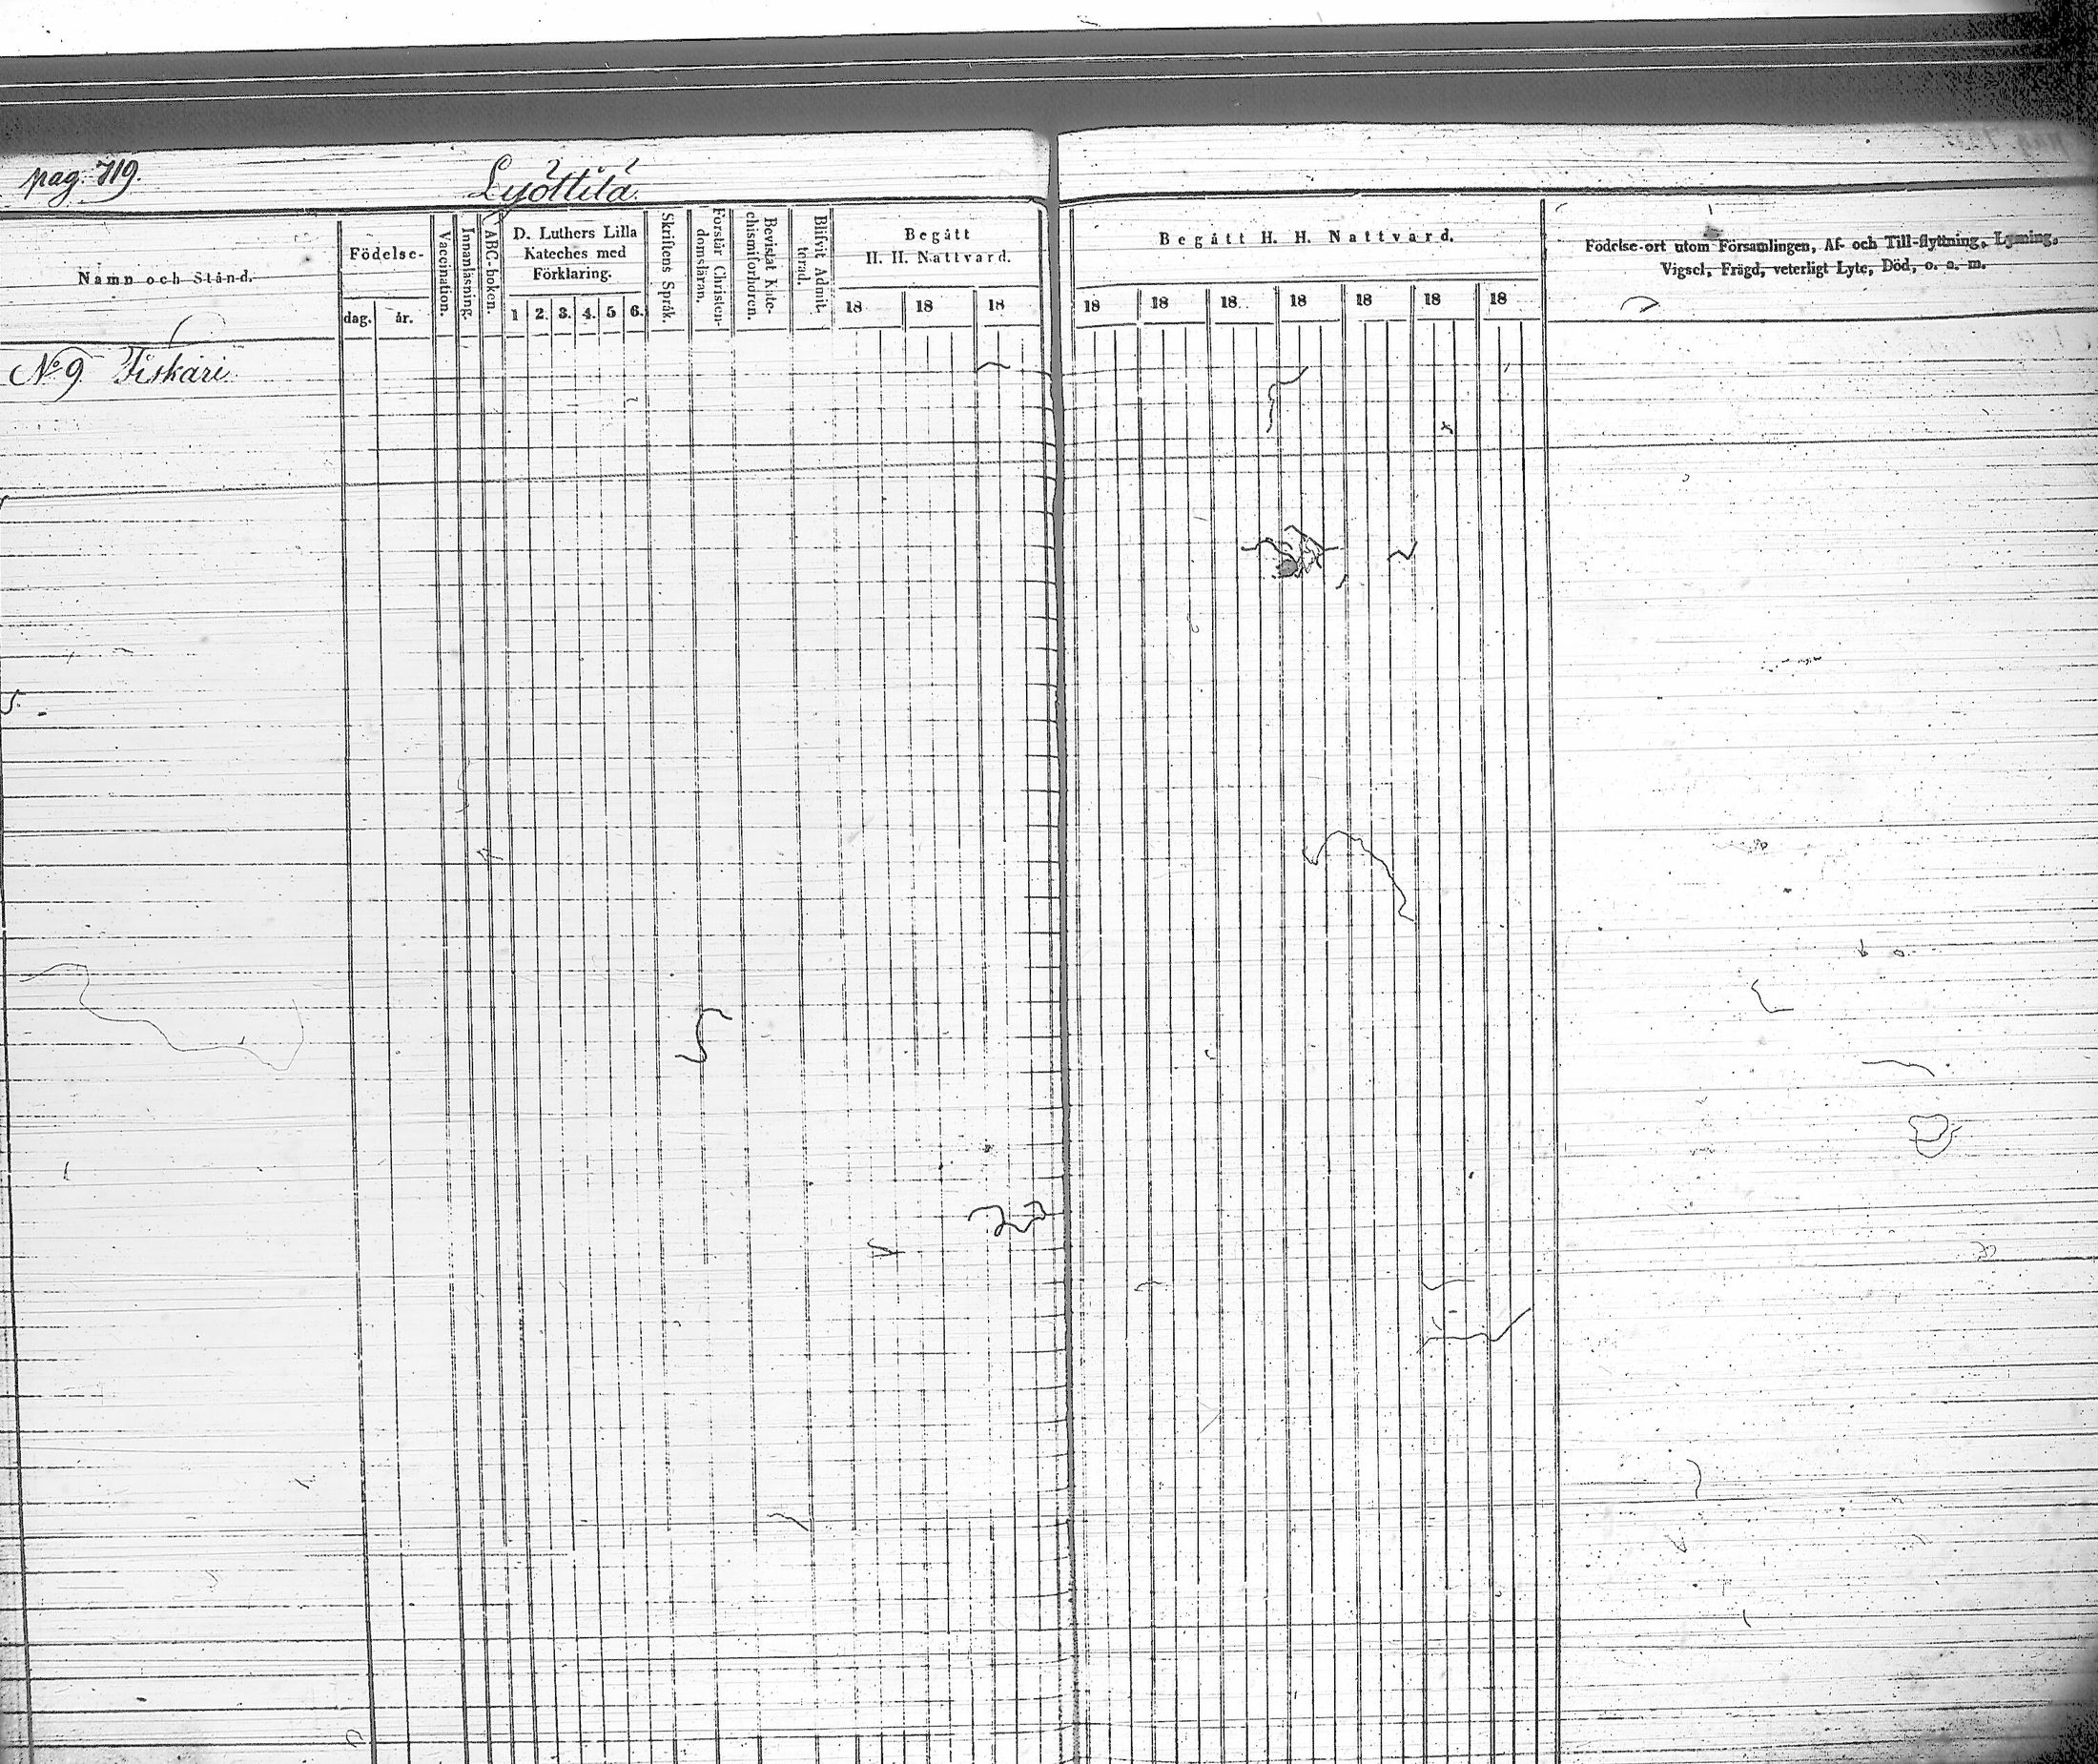 pag. 719.
Lyöttilä.
Namn och Stånd.
Födelse-
dag.
år.
Vaccination.
Innanläsning.
ABC-boken.
D. Luthers Lilla
Kateches med
Förklaring.
1 2. 3. 4. 5 6.
Skriftens Språk.
Förstår Christen-
domsläran.
Bevistat Kate-
chismiförhören.
Blifvit Admit-
terad.
Begått
H. H. Nattvard.
18 18 18
Begått H. H. Nattvard.
18 18 18 18 18 18 18
Födelse-ort utom Församlingen, Af- och Till-flyttning, Lysning,
Vigsel, Frägd, veterligt Lyte, Död, o. s. m.
No 9 Fiskari